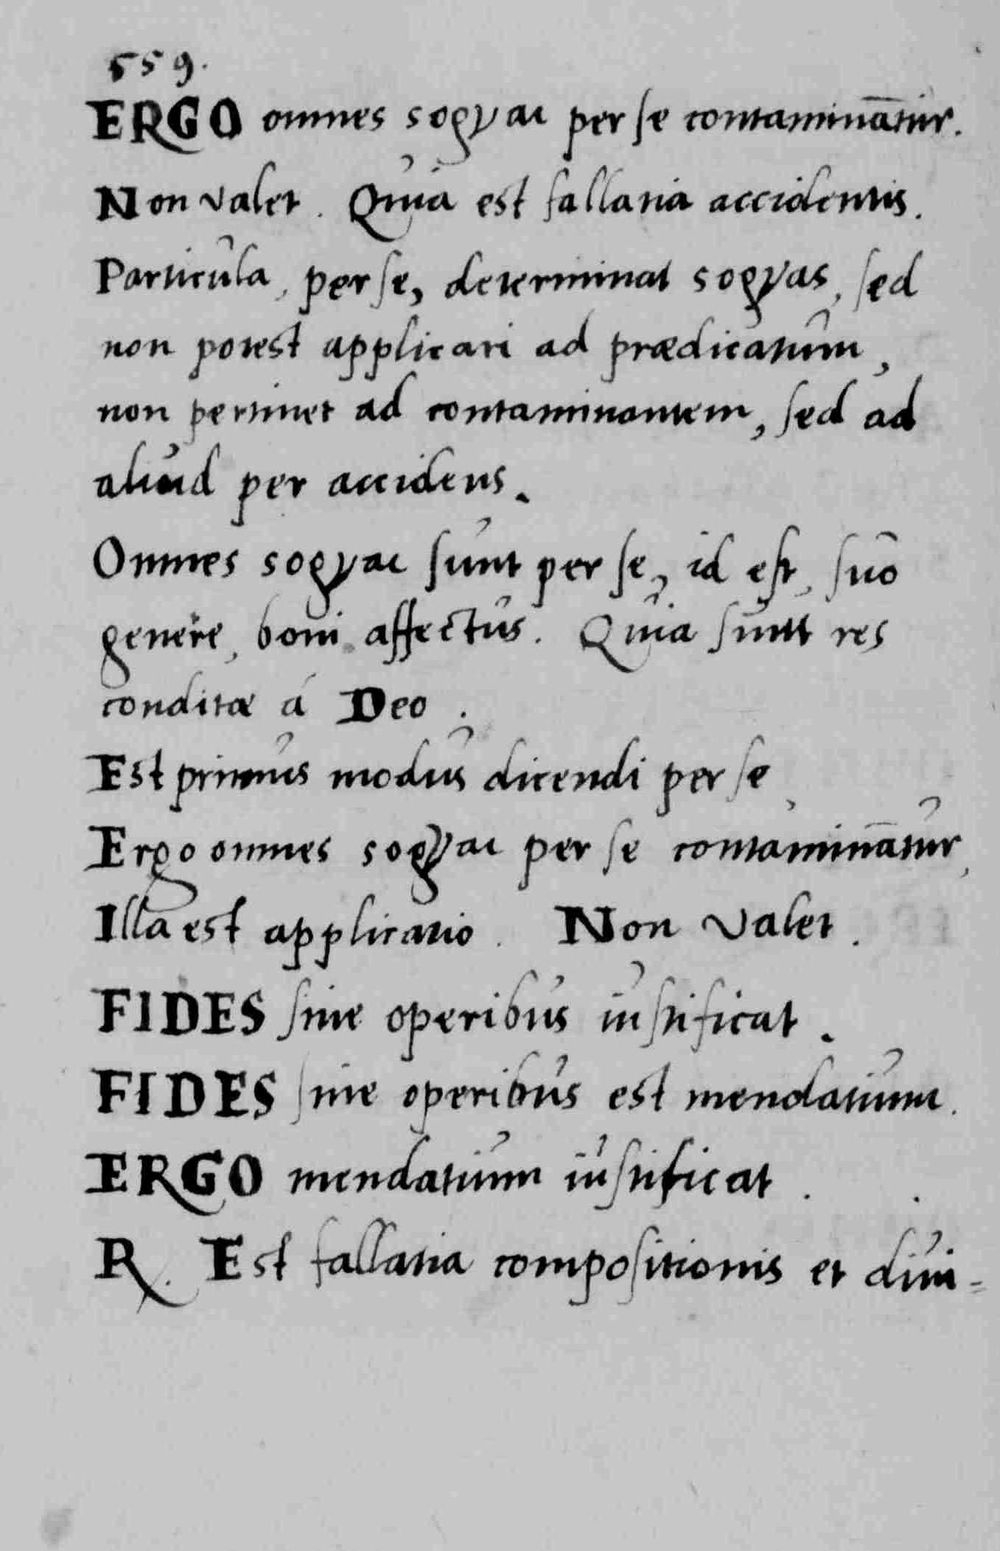 559.
ERGO omnes ϛοργαι per se contaminātur.
Non valet. Quia est fallatia accidentis.
Particula, per se, determinat ϛοργας, sed
non potest applicari ad prædicatum,
non pertinet ad contaminantem, sed ad
aliud per accidens.
Omnes ϛοργαι sunt per se, id est, suo
genere, boni affectus. Quia sunt res
conditæ á Deo.
Est primus modus dicendi per se,
Ergo omnes ϛοργαι per se contaminātur,
Illa est applicatio. Non valet.
FIDES sine operibus iustificat.
FIDES sine operibus est mendatium.
ERGO mendatium iustificat.
R. Est fallatia compositionis et diui=